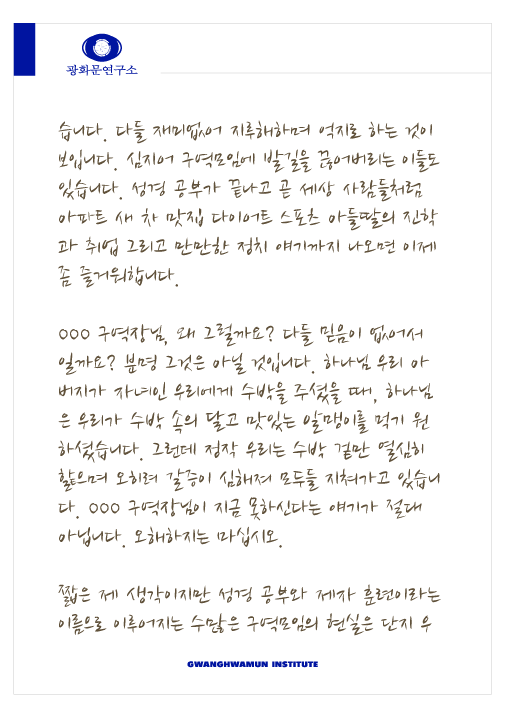 광화문연구소
습니다. 다들 재미없어 지루해하며 억지로 하는 것이
보입니다. 심지어 구역모임에 발길을 끊어버리는 이들도
있습니다. 성경 공부가 끝나고 곧 세상 사람들처럼
아파트 새 차 맛집 다이어트 스포츠 아들딸의 진학
과 취업 그리고 만만한 정치 얘기까지 나오면 이제
좀 즐거워합니다.
OOO 구역장님, 왜 그럴까요? 다들 믿음이 없어서
일까요? 분명 그것은 아닐 것입니다. 하나님 우리 아
버지가 자녀인 우리에게 수박을 주셨을 때, 하나님
은 우리가 수박 속의 달고 맛있는 알맹이를 먹기 원
하셨습니다. 그런데 정작 우리는 수박 겉만 열심히
핥으며 오히려 갈증이 심해져 모두들 지쳐가고 있습니
다. OOO 구역장님이 지금 못하신다는 얘기가 절대
아닙니다. 오해하지는 마십시오.
짧은 제 생각이지만 성경 공부와 제자 훈련이라는
이름으로 이루어지는 수많은 구역모임의 현실은 단지 우
GWANGHWAMUN INSTITUTE